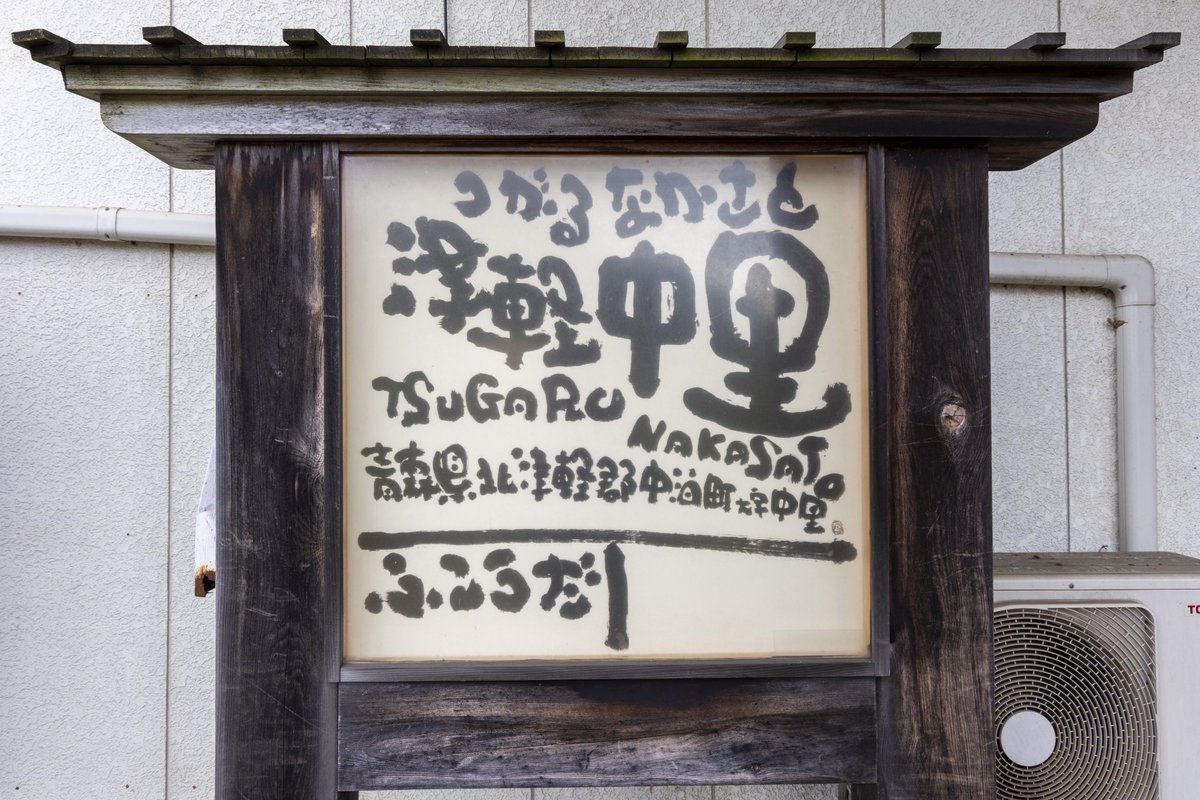 つがるなかさと
津軽中里
TSUGARU
NAKASATO
青森県北津軽郡中泊町大字中里
ふこうだ
TO